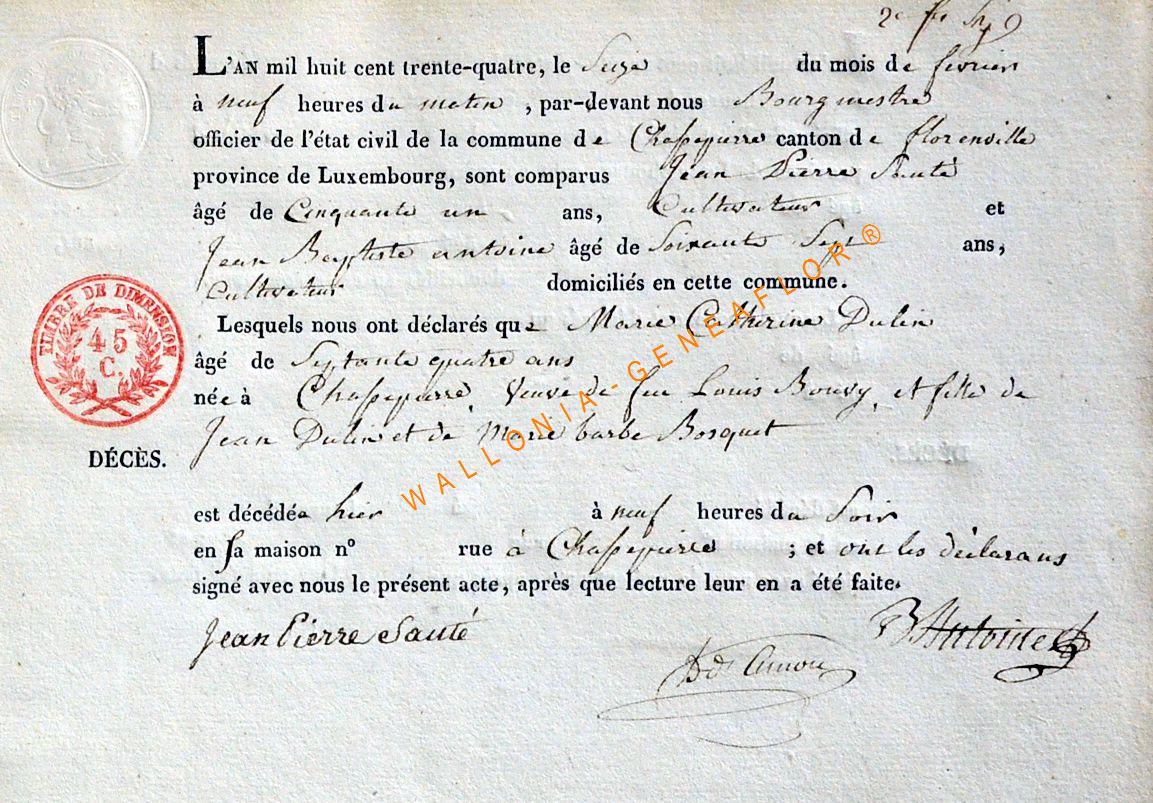 L'AN mil huit cent trente-quatre, le Seize du mois de fevrier
à neuf heures du matin, par-devant nous Bourgmestre
officier de l'état civil de la commune de Chassepierre canton de florenville
province de Luxembourg, sont comparus Jean Pierre Sauté
âgé de Cinquante un ans, Cultivateur et
Jean Baptiste antoine âgé de Soixante Sept ans,
Cultivateur domiciliés en cette commune.
Lesquels nous ont déclarés que Marie Catherine Dulin
âgé de Septante quatre ans
née à Chassepierre, Veuve de feu Louis Bouvy, et fille de
Jean Dulin et de Marie barbe Bosquet
DÉCÈS.
est décédée hier à neuf heures du Soir
en Sa maison nº rue à Chassepierre ; et ont les déclarans
signé avec nous le présent acte, après que lecture leur en a été faite.
Jean Pierre Sauté
Antoine
TIMBRE DE DIMENSION
45
C.
WALLONIA-GENEAFLOR®